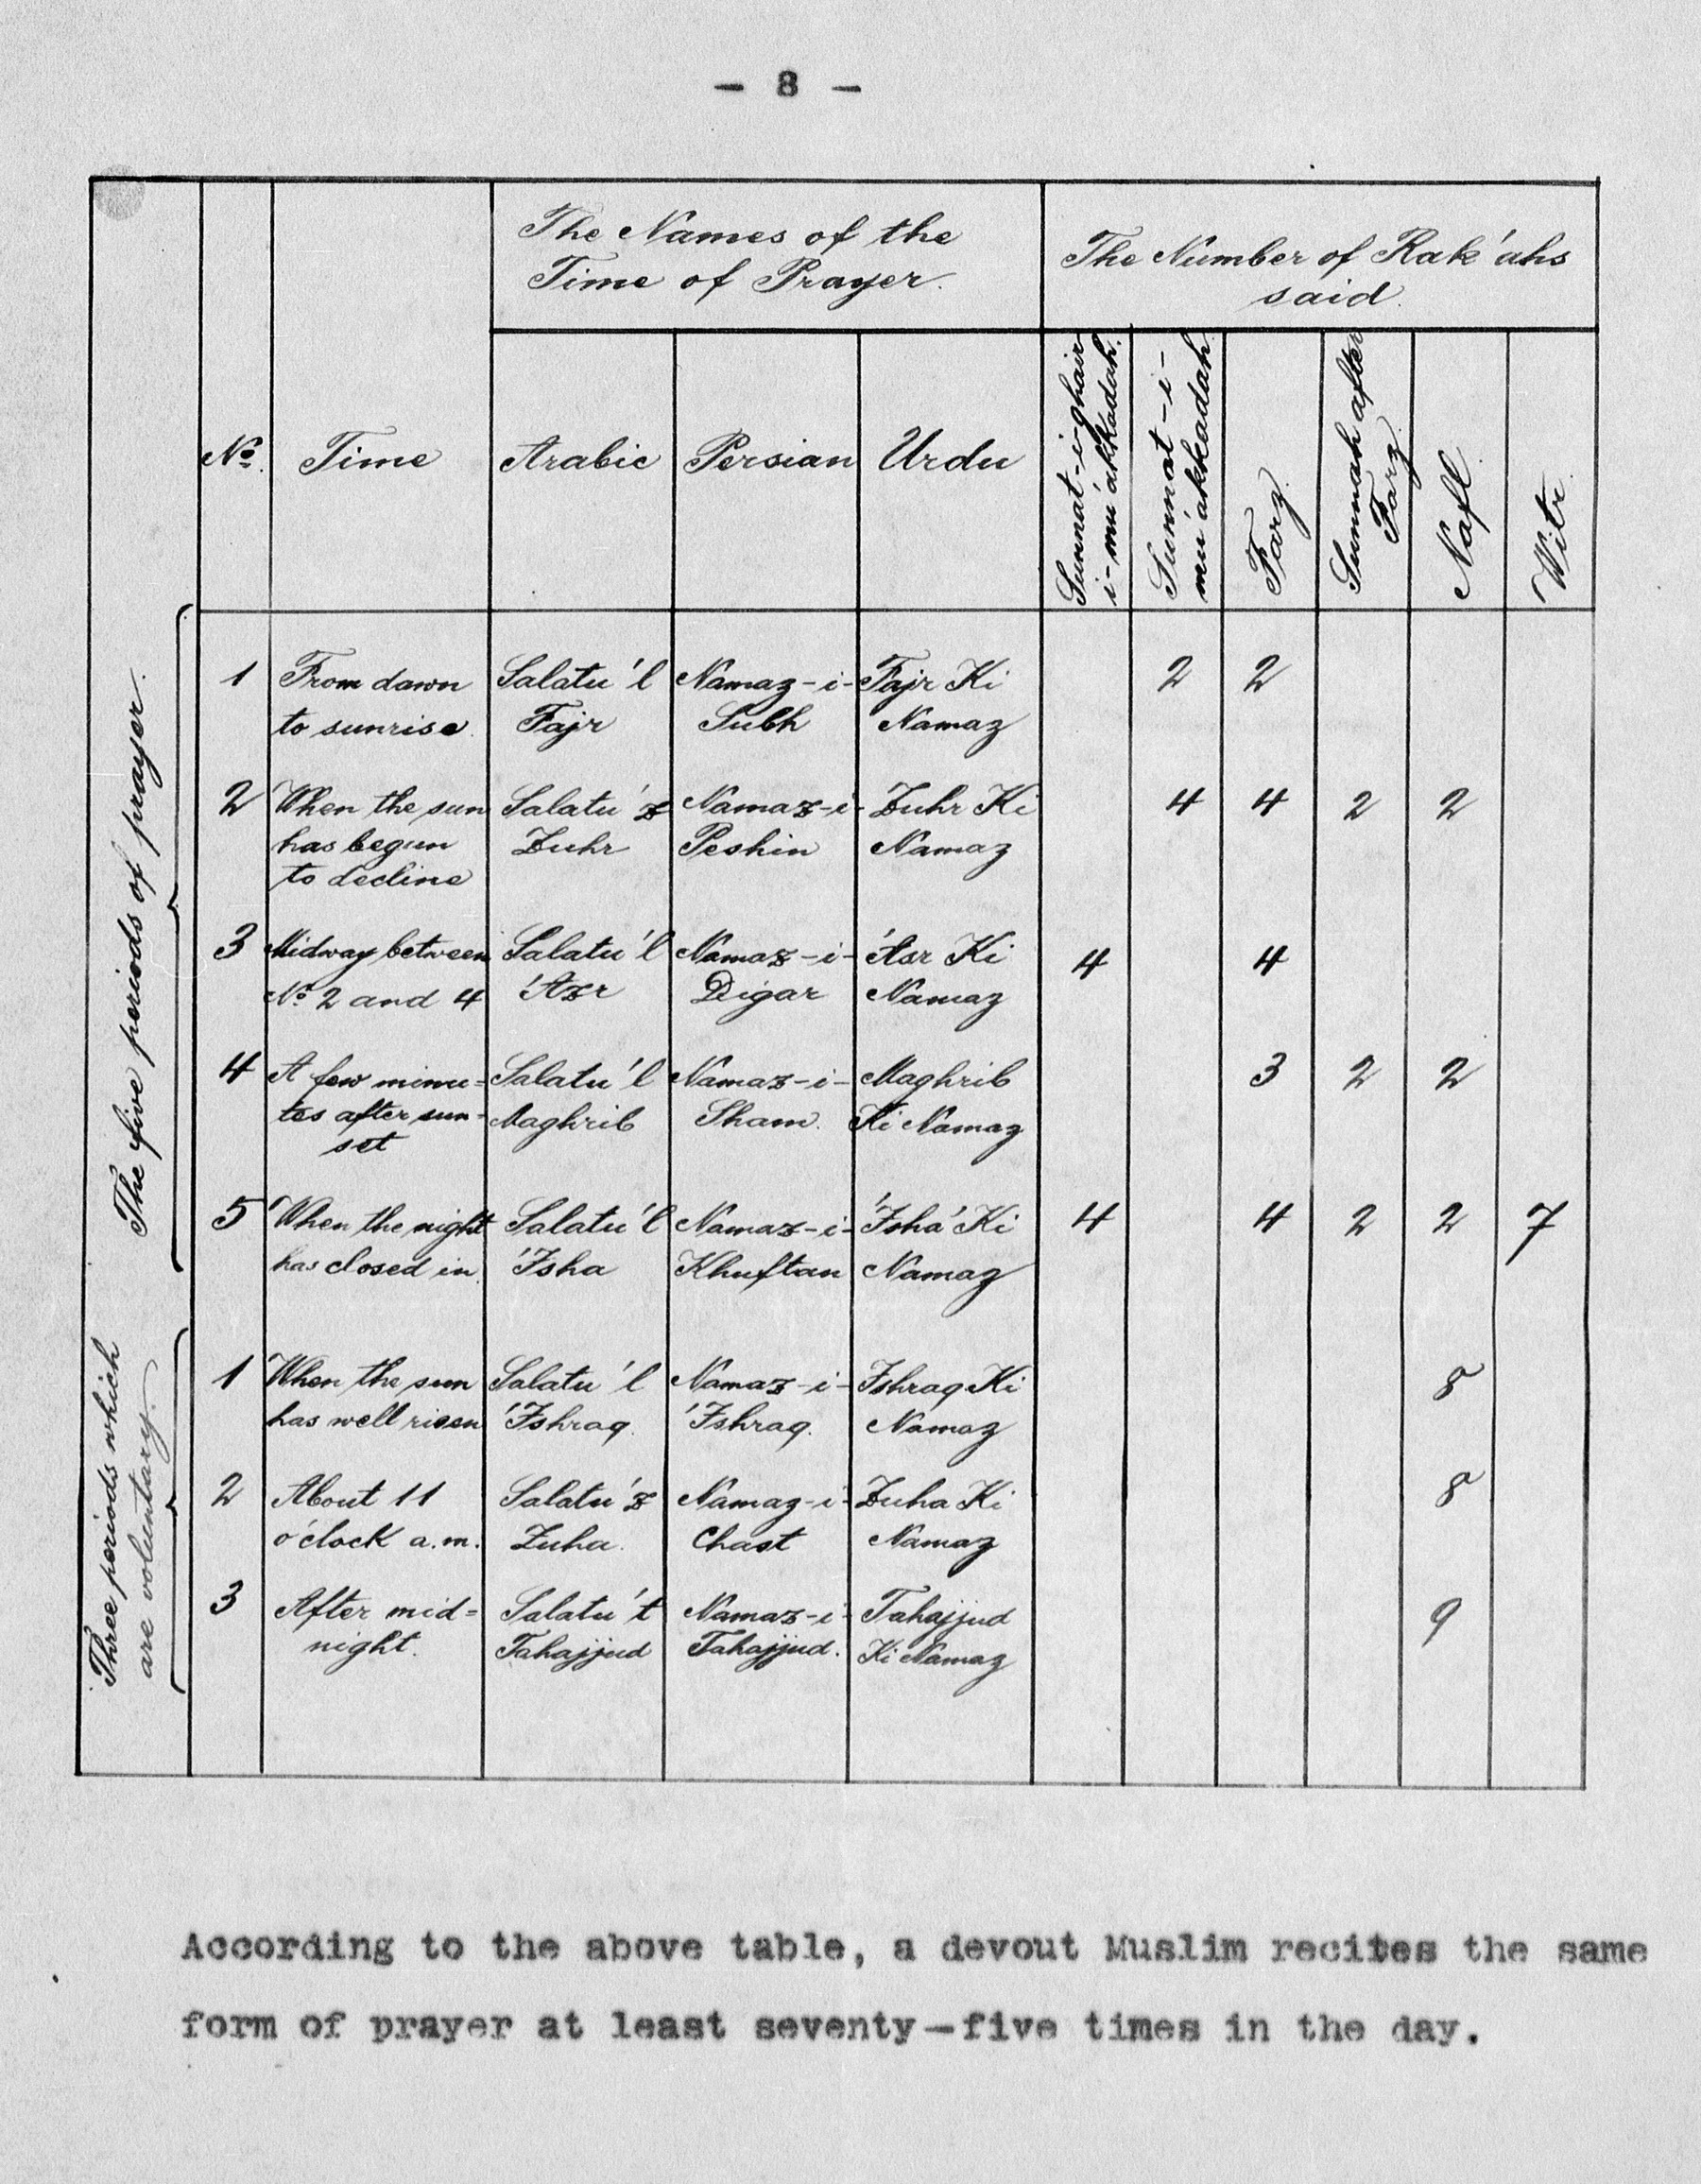 - 8 -
The Names of the
Time of Prayer.
The Number of Rak'ahs
said.
No.
Time
Arabic
Persian
Urdu
Sunnat-i-ghair-
i-mu'akkadah.
Sunnat-i-
mu'akkadah
Farz.
Sunnah after
Farz
Nafl.
Witr.
The five periods of prayer.
1 From dawn Salatu'l Namaz-i- Fajr Ki 2 2
to sunrise. Fajr Subh Namaz
2 When the sun Salatu'z Namaz-i- Zuhr Ki 4 4 2 2
has begun Zuhr Peshin Namaz
to decline
3 Midway between Salatu'l Namaz-i- 'Asr Ki 4 4
No. 2 and 4 'Azr Digar Namaz
4 A few minu= Salatu'l Namaz-i- Maghrib 3 2 2
tes after sun= Maghrib Sham. Ki Namaz
set
5 When the night Salatu'l Namaz-i- 'Isha' Ki 4 4 2 2 7
has closed in. 'Isha Khuftan Namaz
Three periods which
are voluntary.
1 When the sun Salatu'l Namaz-i- Ishraq Ki 8
has well risen 'Ishraq. 'Ishraq. Namaz
2 About 11 Salatu'z Namaz-i- Zuha Ki 8
o'clock a.m. Zuha. Chast Namaz
3 After mid= Salatu't Namaz-i- Tahajjud 9
night. Tahajjud Tahajjud. Ki Namaz
According to the above table, a devout Muslim recites the same
form of prayer at least seventy-five times in the day.